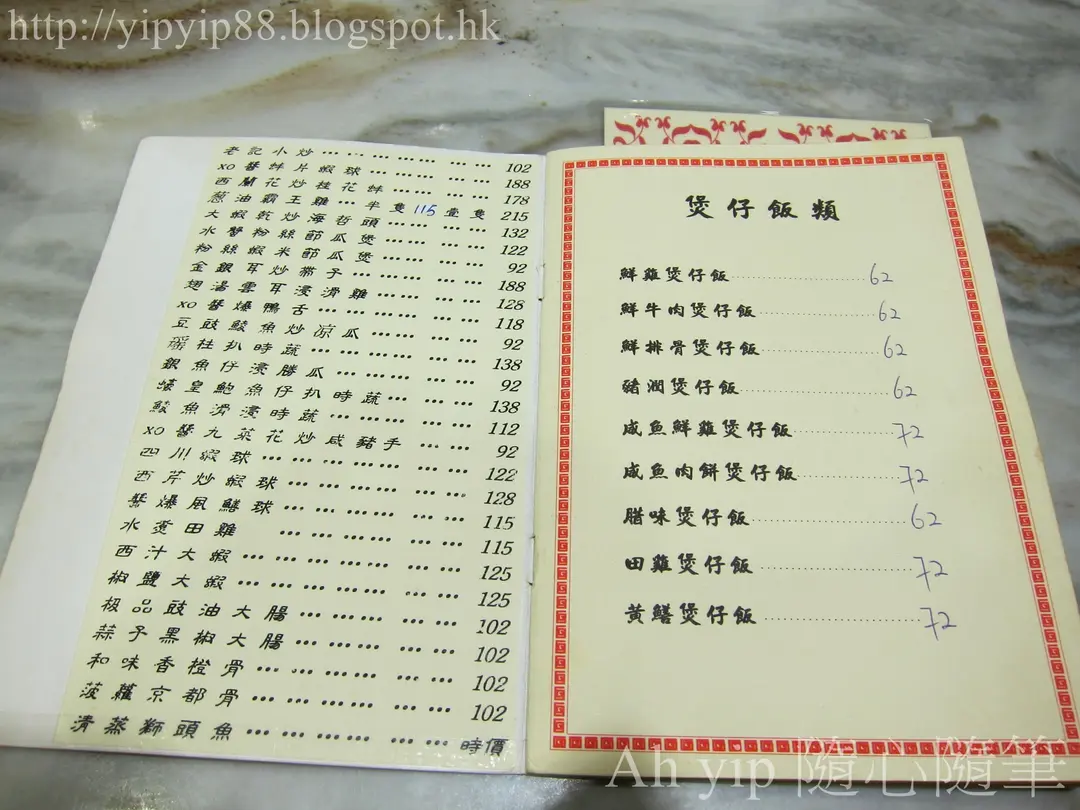 http://yipyip88.blogspot.hk
老記小炒 … … … … … … 102
xo醬蚌片蝦球 … … … … … 188
西蘭花炒桂花蚌 … … … … 178
蔥油霸王雞 … 半隻 115 壹隻 215
大蝦乾炒海哲頭 … … … 132
水蟹粉絲節瓜煲 … … … 122
粉絲蝦米節瓜煲 … … … 92
金銀耳炒帶子 … … … … 188
翅湯雲耳浸滑雞 … … … 128
xo醬爆鴨舌 … … … … … 118
豆豉鯪魚炒凉瓜 … … … 92
瑤柱扒時蔬 … … … … … 138
銀魚仔浸勝瓜 … … … … 92
蠔皇鮑魚仔扒時蔬 … … … 138
鯪魚滑浸時蔬 … … … … 112
xo醬九菜花炒咸豬手 … … 92
四川蝦球 … … … … … … 122
西芹炒蝦球 … … … … … 128
醬爆風鱔球 … … … … … 115
水煮田雞 … … … … … 115
西汁大蝦 … … … … … … 125
椒鹽大蝦 … … … … … … 125
极品豉油大腸 … … … … 102
蒜子黑椒大腸 … … … … 102
和味香橙骨 … … … … … 102
菠蘿京都骨 … … … … … 102
清蒸獅頭魚 … … … … … 時價
煲仔飯類
鮮雞煲仔飯 62
鮮牛肉煲仔飯 62
鮮排骨煲仔飯 62
豬潤煲仔飯 62
咸魚鮮雞煲仔飯 72
咸魚肉餅煲仔飯 72
腊味煲仔飯 62
田雞煲仔飯 72
黃鱔煲仔飯 72
Ah yip 隨心隨筆